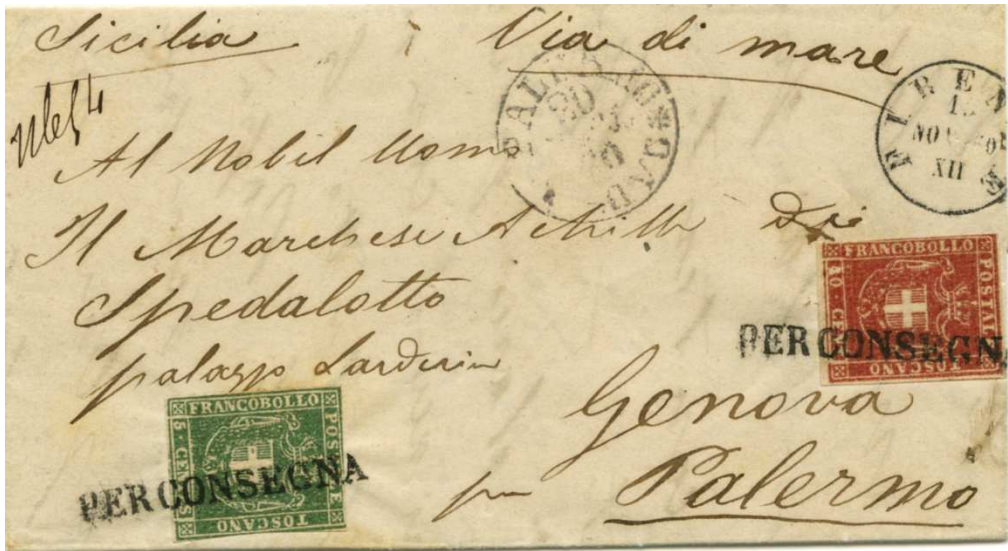 Sicilia Via di mare
PALERMO
20
FIRENZE
NOV
XII
Al Nobil Uomo
Il Marchese Achille Dei
Spedalotto
palazzo
FRANCOBOLLO
POSTALE
TOSCANO
40 CENT
PER CONSEGNA
Genova
FRANCOBOLLO
POSTALE
TOSCANO
5 CENT
PER CONSEGNA
per Palermo